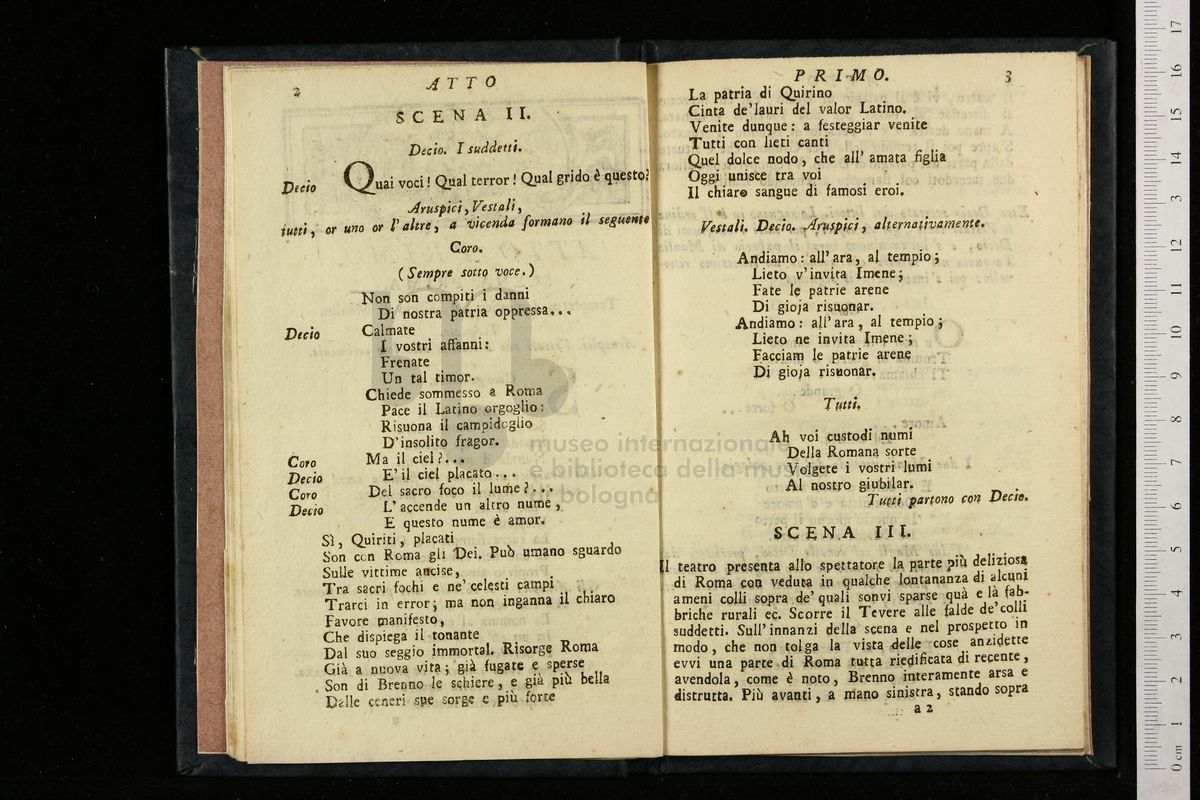 2
ATTO
SCENA II.
Decio. I suddetti.
Decio Quai voci! Qual terror! Qual grido è questo?
Aruspici, Vestali,
tutti, or uno or l'altre, a vicenda formano il seguente
Coro.
(Sempre sotto voce.)
Non son compiti i danni
Di nostra patria oppressa...
Decio Calmate
I vostri affanni:
Frenate
Un tal timor.
Chiede sommesso a Roma
Pace il Latino orgoglio:
Risuona il campidoglio
D'insolito fragor.
Coro Ma il ciel?...
Decio E' il ciel placato...
Coro Del sacro foco il lume?...
Decio L'accende un altro nume,
E questo nume è amor.
Sì, Quiriti, placati
Son con Roma gli Dei. Può umano sguardo
Sulle vittime ancise,
Tra sacri fochi e ne' celesti campi
Trarci in error; ma non inganna il chiaro
Favore manifesto,
Che dispiega il tonante
Dal suo seggio immortal. Risorge Roma
Già a nuova vita; già fugate e sperse
Son di Brenno le schiere, e già più bella
Dalle ceneri sue sorge e più forte
PRIMO.
3
La patria di Quirino
Cinta de'lauri del valor Latino.
Venite dunque: a festeggiar venite
Tutti con lieti canti
Quel dolce nodo, che all' amata figlia
Oggi unisce tra voi
Il chiaro sangue di famosi eroi.
Vestali. Decio. Aruspici, alternativamente.
Andiamo: all'ara, al tempio;
Lieto v'invita Imene;
Fate le patrie arene
Di gioja risuonar.
Andiamo: all'ara, al tempio;
Lieto ne invita Imene;
Facciam le patrie arene
Di gioja risuonar.
Tutti.
Ah voi custodi numi
Della Romana sorte
Volgete i vostri lumi
Al nostro giubilar.
Tutti partono con Decio.
SCENA III.
Il teatro presenta allo spettatore la parte più deliziosa
di Roma con veduta in qualche lontananza di alcuni
ameni colli sopra de' quali sonvi sparse quà e là fab-
briche rurali ec. Scorre il Tevere alle falde de'colli
suddetti. Sull'innanzi della scena e nel prospetto in
modo, che non tolga la vista delle cose anzidette
evvi una parte di Roma tutta riedificata di recente,
avendola, come è noto, Brenno interamente arsa e
distrutta. Più avanti, a mano sinistra, stando sopra
a 2
museo internazionale
e biblioteca della musica
di bologna
0 cm 1 2 3 4 5 6 7 8 9 10 11 12 13 14 15 16 17